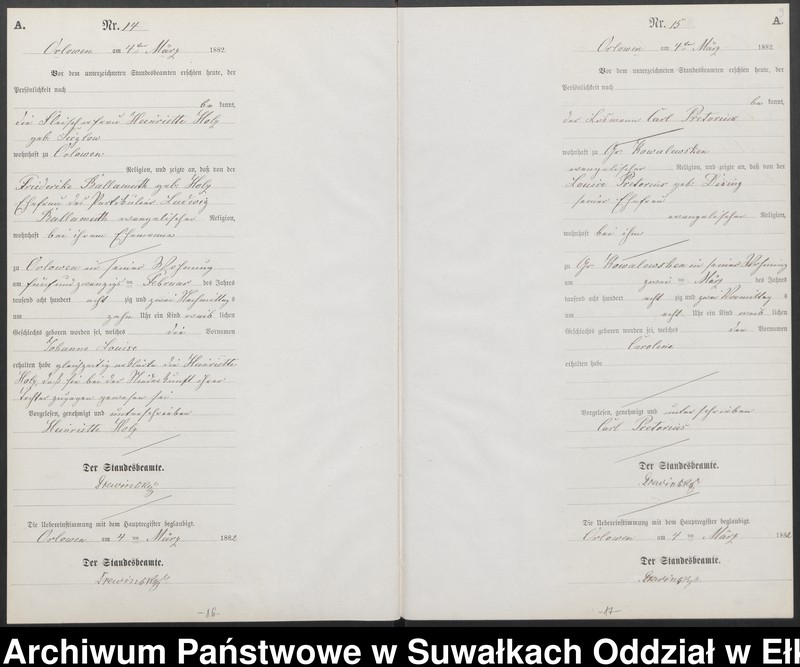 A.
Nr. 14
Orlowen am 4ten März 1882.
Vor dem unterzeichneten Standesbeamten erschien heute, der
Persönlichkeit nach
be kannt,
die Fleischerfrau Henriette Holz
geb.
wohnhaft zu Orlowen
Religion, und zeigte an, daß von der
Friederike Ballamuth geb. Holz
Ehefrau des Partikulier Ludwig
Ballamuth evangelischer Religion,
wohnhaft bei ihrem Ehemanne
zu Orlowen in seiner Wohnung
am fünfundzwanzigs ten Februar des Jahres
tausend acht hundert acht zig und zwei Nachmittag s
um zehn Uhr ein Kind weib lichen
Geschlechts geboren worden sei, welches die Vornamen
Johanne Louise
erhalten habe gleichzeitig erklärte die Henriette
Holz, daß sie bei der Niederkunft ihrer
Tochter zugegen gewesen sei
Vorgelesen, genehmigt und unterschrieben
Henriette Holz
Der Standesbeamte.
Die Uebereinstimmung mit dem Hauptregister beglaubigt.
Orlowen am 4 ten März 1882
Der Standesbeamte.
-16-
Nr. 15
A.
Orlowen am 4ten März 1882
Vor dem unterzeichneten Standesbeamten erschien heute, der
Persönlichkeit nach
be kannt,
der Losmann Carl Pretorius
wohnhaft zu Gr. Kowalewsken
evangelischer Religion, und zeigte an, daß von der
Louise Pretorius geb.
seiner Ehefrau
evangelischer Religion,
wohnhaft bei ihm
zu Gr. Kowalewsken in seiner Wohnung
am zwei ten März des Jahres
tausend acht hundert acht zig und zwei Vormittag s
um acht Uhr ein Kind weib lichen
Geschlechts geboren worden sei, welches den Vornamen
Caroline
erhalten habe
Vorgelesen, genehmigt und unterschrieben
Carl Pretorius
Der Standesbeamte.
Die Uebereinstimmung mit dem Hauptregister beglaubigt.
Orlowen am 4 ten März 1882
Der Standesbeamte.
-17-
Archiwum Państwowe w Suwałkach Oddział w Eł